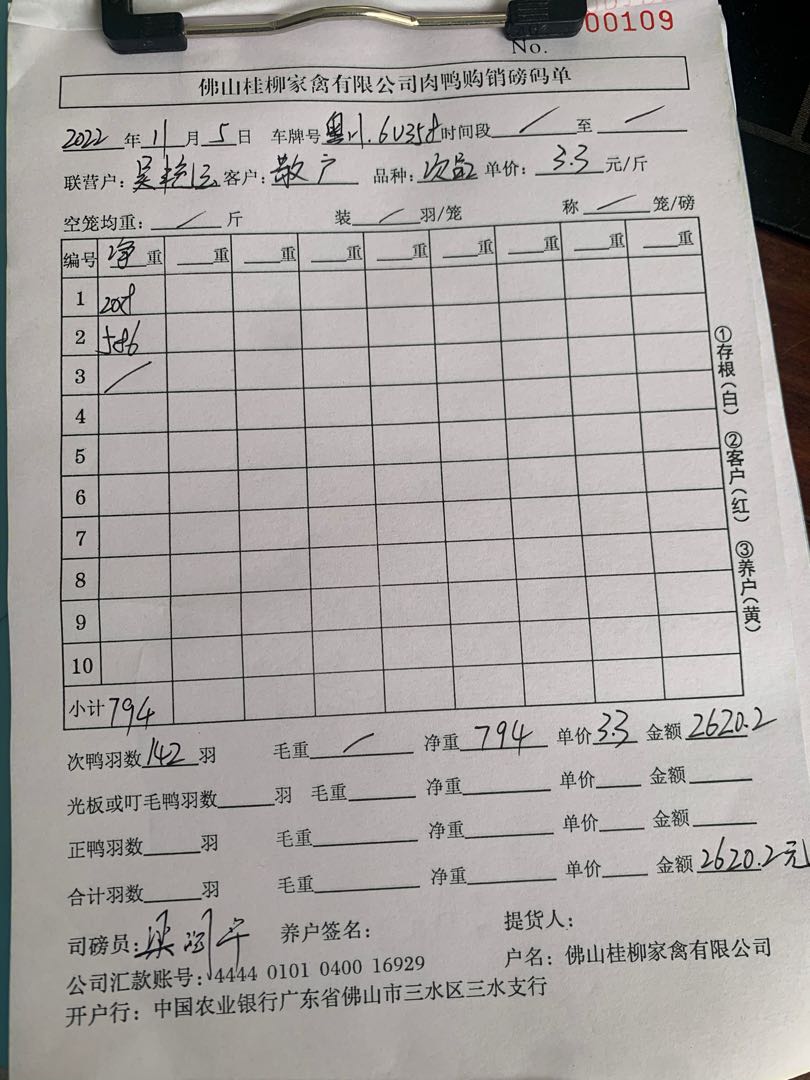 No. 00109
佛山桂柳家禽有限公司肉鸭购销磅码单
2022 年 11 月 5 日 车牌号 时间段 / 至 /
联营户: 客户: 散户 品种: 次品 单价: 3.3 元/斤
空笼均重: / 斤 装 / 羽/笼 称 / 笼/磅
编号 净重 重 重 重 重 重 重 重 重
1 208
2 586
3 /
4
5
6
7
8
9
10
小计 794
①存根(白) ②客户(红) ③养户(黄)
次鸭羽数 142 羽 毛重 / 净重 794 单价 3.3 金额 2620.2
光板或叮毛鸭羽数 羽 毛重 净重 单价 金额
正鸭羽数 羽 毛重 净重 单价 金额
合计羽数 羽 毛重 净重 单价 金额 2620.2元
司磅员: 养户签名: 提货人:
公司汇款账号: 4444 0101 0400 16929 户名: 佛山桂柳家禽有限公司
开户行: 中国农业银行广东省佛山市三水区三水支行